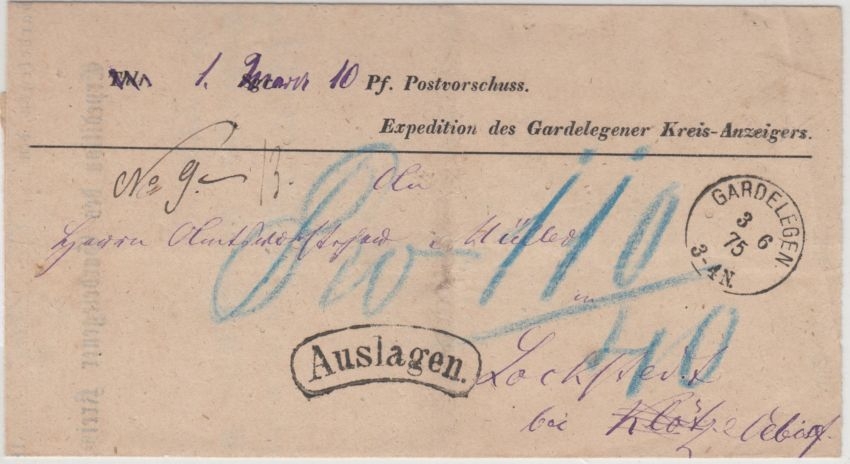 1. Mark 10 Pf. Postvorschuss.
Expedition des Gardelegener Kreis-Anzeigers.
No 9. 13. An
Herrn Amtsvorsteher Müller
110
in
Auslagen.
Lockstedt
bei Klötze Oebisf
GARDELEGEN.
3 6
75
3-4N.